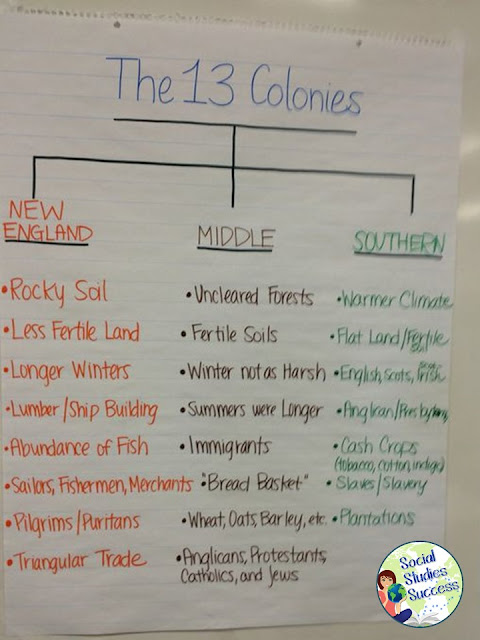 The 13 Colonies
NEW
ENGLAND
•Rocky Soil
•Less Fertile Land
•Longer Winters
•Lumber/Ship Building
•Abundance of Fish
•Sailors, Fishermen, Merchants
•Pilgrims/Puritans
•Triangular Trade
MIDDLE
•Uncleared Forests
•Fertile Soils
•Winter not as Harsh
•Summers were Longer
•Immigrants
•"Bread Basket"
•Wheat, Oats, Barley, etc.
•Anglicans, Protestants,
Catholics, and Jews
SOUTHERN
•Warmer Climate
•Flat Land/Fertile
soil
•English, Scots, Irish
•Anglican/
•Cash Crops
(tobacco, cotton, indigo)
•Slaves/Slavery
•Plantations
Social
Studies
Success